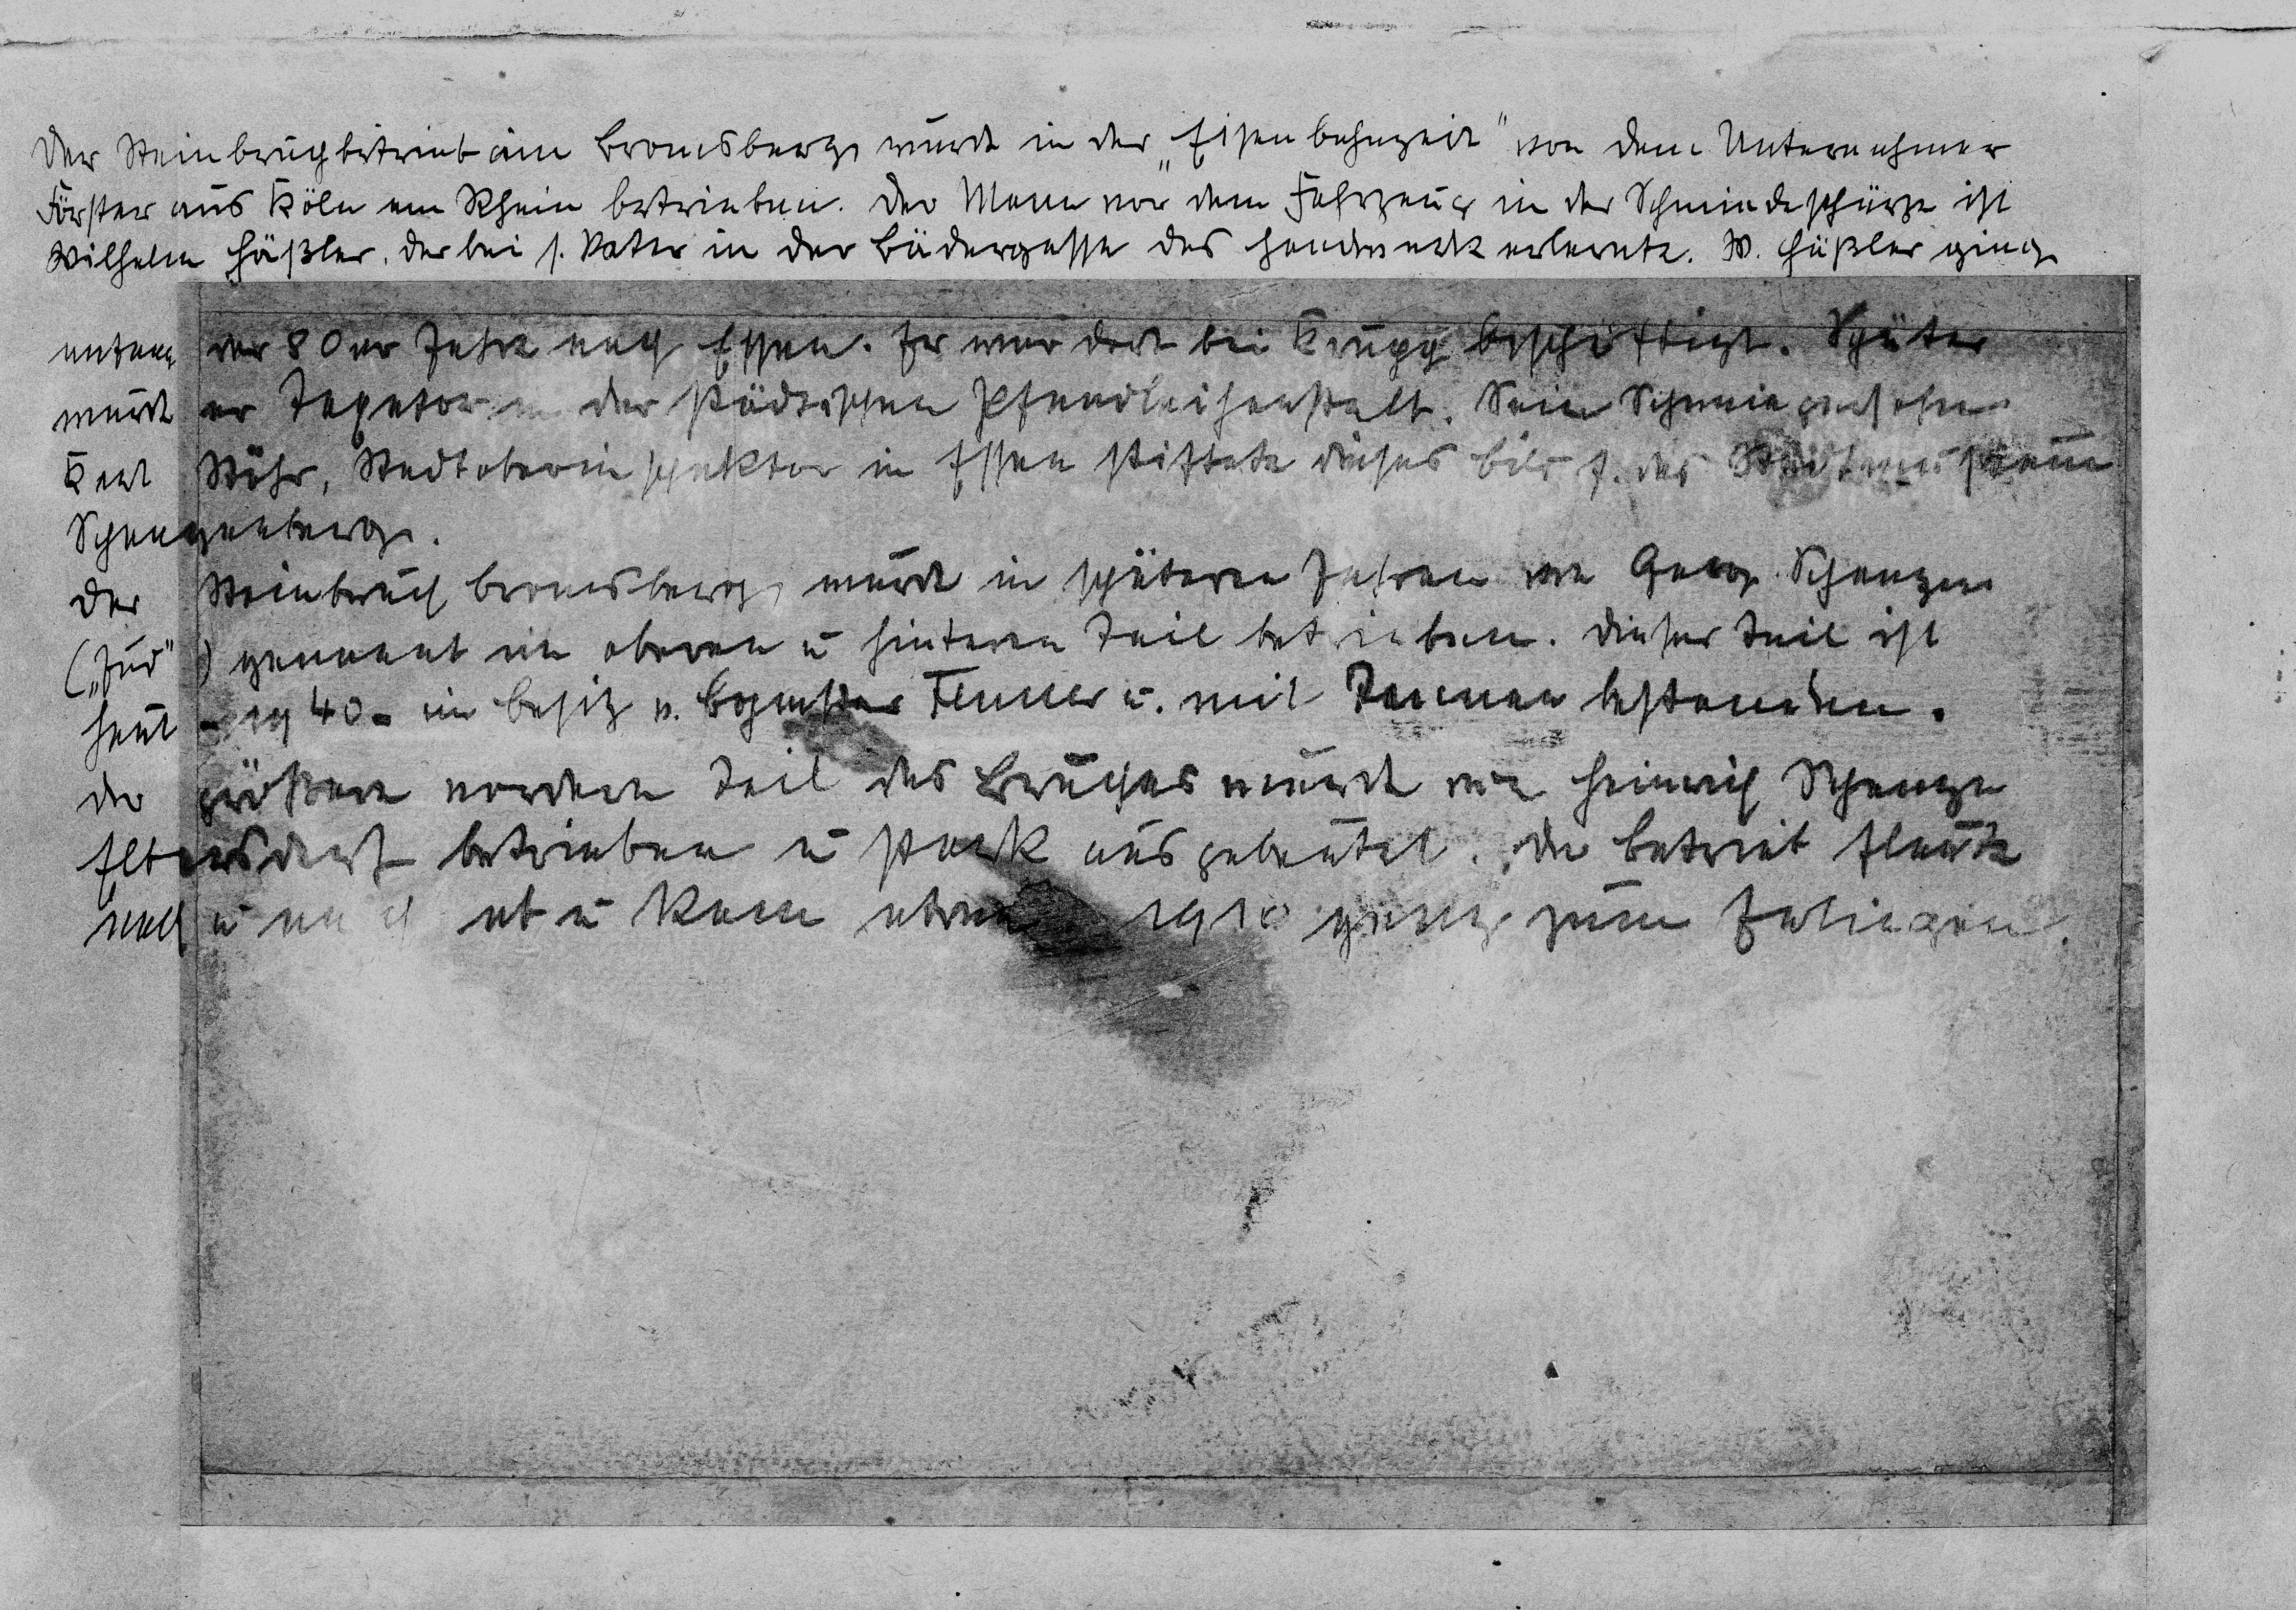 Der Steinbruchbetrieb am Bromsberg wurde in der „Eisenbahnzeit" von dem Unternehmer
Förster aus Köln am Rhein betrieben. Der Mann vor dem Fahrzeug in der Schmiedeschürze ist
Wilhelm Häßler, der bei s. Vater in der Bädergasse das Handwerk erlernte. W. Häßler ging
anfang der 80er Jahre nach Essen. Er war dort bei Krupp beschäftigt. Später
wurde er Taxator in der städtischen Pfandleihanstalt. Sein Schwiegersohn
Karl Stöhr, Stadtoberinspektor in Essen stiftete dieses Bild f. das Stadtmuseum
Spangenberg.
Der Steinbruch Bromsberg wurde in späteren Jahren von Georg Schanze
(„Jud") genannt im oberen u hinteren Teil betrieben. Dieser Teil ist
heut - 1940 - im Besitz v. Bgmstr Fenner u. mit Tannen bestanden.
Der größere vordere Teil des Bruches wurde von Heinrich Schanze
Elbersdorf betrieben u stark ausgebeutet. Der Betrieb flaute
nach u nach ab u kam etwa 1910 ganz zum Erliegen.